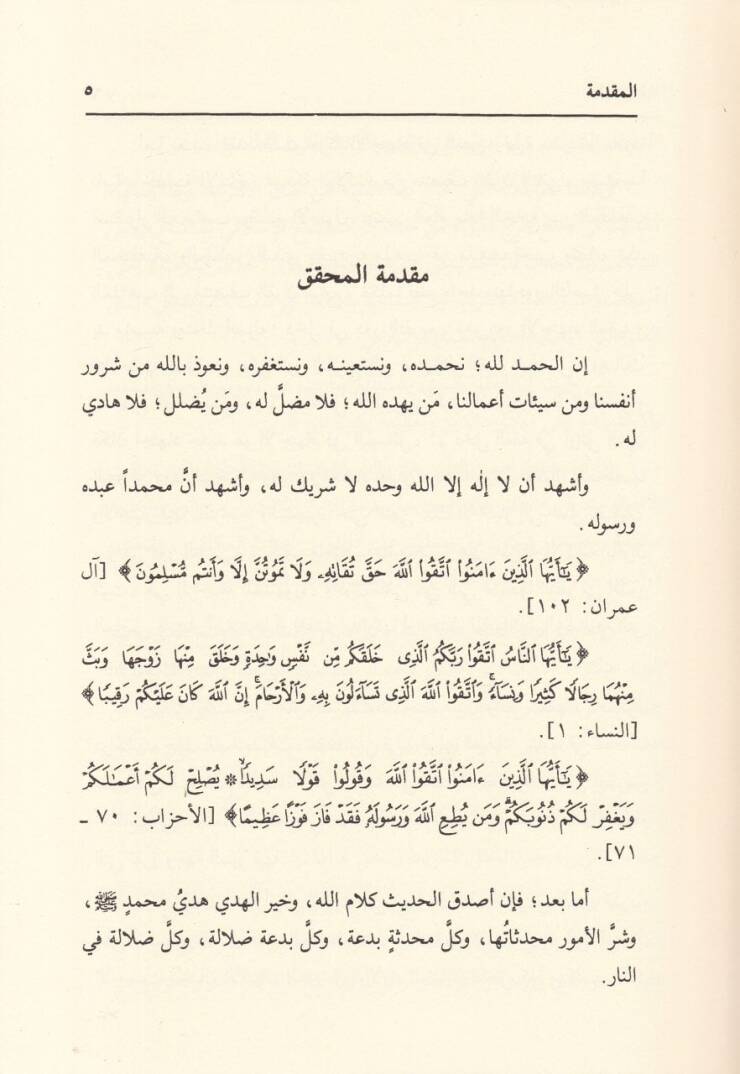 المقدمة ٥
مقدمة المحقق
إن الحمـد لله؛ نحمـده، ونستعينـه، ونستغفره، ونعوذ بالله من شرور
أنفسنا ومن سيئات أعمالنا، مَن يهده الله؛ فلا مضلَّ له، ومَن يُضلل؛ فلا هادي
له.
وأشهد أن لا إلٰه إلا الله وحده لا شريك له، وأشهد أنَّ محمداً عبده
ورسوله.
﴿يَـٰٓأَيُّهَا ٱلَّذِينَ ءَامَنُوا۟ ٱتَّقُوا۟ ٱللَّهَ حَقَّ تُقَاتِهِۦ وَلَا تَمُوتُنَّ إِلَّا وَأَنتُم مُّسْلِمُونَ﴾ [آل
عمران: ١٠٢].
﴿يَـٰٓأَيُّهَا ٱلنَّاسُ ٱتَّقُوا۟ رَبَّكُمُ ٱلَّذِى خَلَقَكُم مِّن نَّفْسٍ وَٰحِدَةٍ وَخَلَقَ مِنْهَا زَوْجَهَا وَبَثَّ
مِنْهُمَا رِجَالًا كَثِيرًا وَنِسَآءً ۚ وَٱتَّقُوا۟ ٱللَّهَ ٱلَّذِى تَسَآءَلُونَ بِهِۦ وَٱلْأَرْحَامَ ۚ إِنَّ ٱللَّهَ كَانَ عَلَيْكُمْ رَقِيبًا﴾
[النساء: ١].
﴿يَـٰٓأَيُّهَا ٱلَّذِينَ ءَامَنُوا۟ ٱتَّقُوا۟ ٱللَّهَ وَقُولُوا۟ قَوْلًا سَدِيدًا * يُصْلِحْ لَكُمْ أَعْمَـٰلَكُمْ
وَيَغْفِرْ لَكُمْ ذُنُوبَكُمْ ۗ وَمَن يُطِعِ ٱللَّهَ وَرَسُولَهُۥ فَقَدْ فَازَ فَوْزًا عَظِيمًا﴾ [الأحزاب: ٧٠ ـ
٧١].
أما بعد؛ فإن أصدق الحديث كلام الله، وخير الهدي هديُ محمدٍ ﷺ،
وشرَّ الأمور محدثاتُها، وكلَّ محدثةٍ بدعة، وكلَّ بدعة ضلالة، وكلَّ ضلالة في
النار.